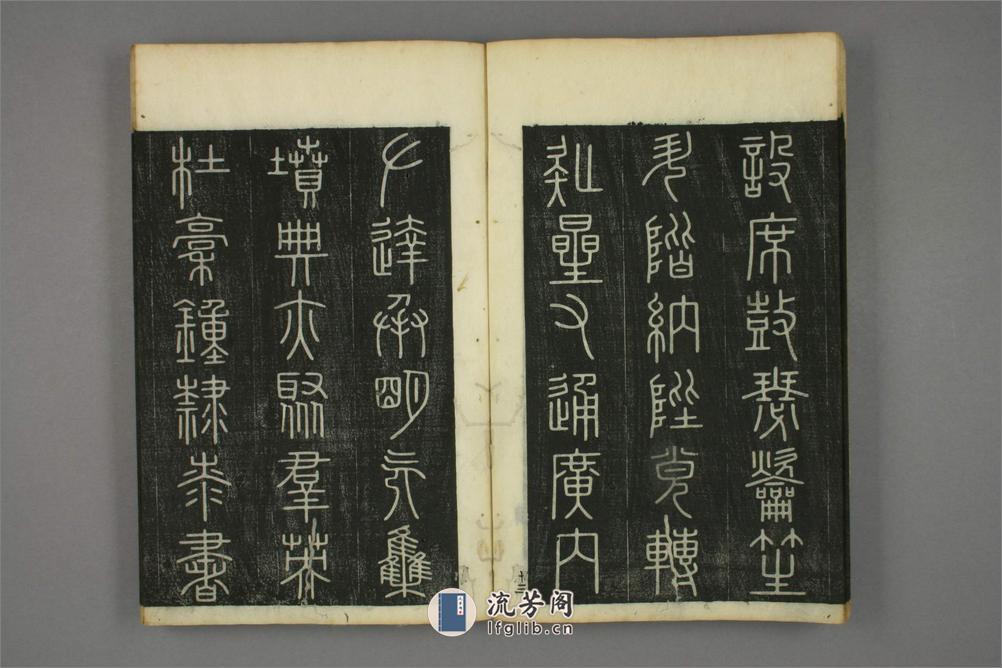 設席鼓瑟龡笙
升階納陛覍轉
疑星右通廣內
左達承明既雧
墳典亦聚羣英
杜稾鐘隸桼書
流芳阁
lfglib.cn